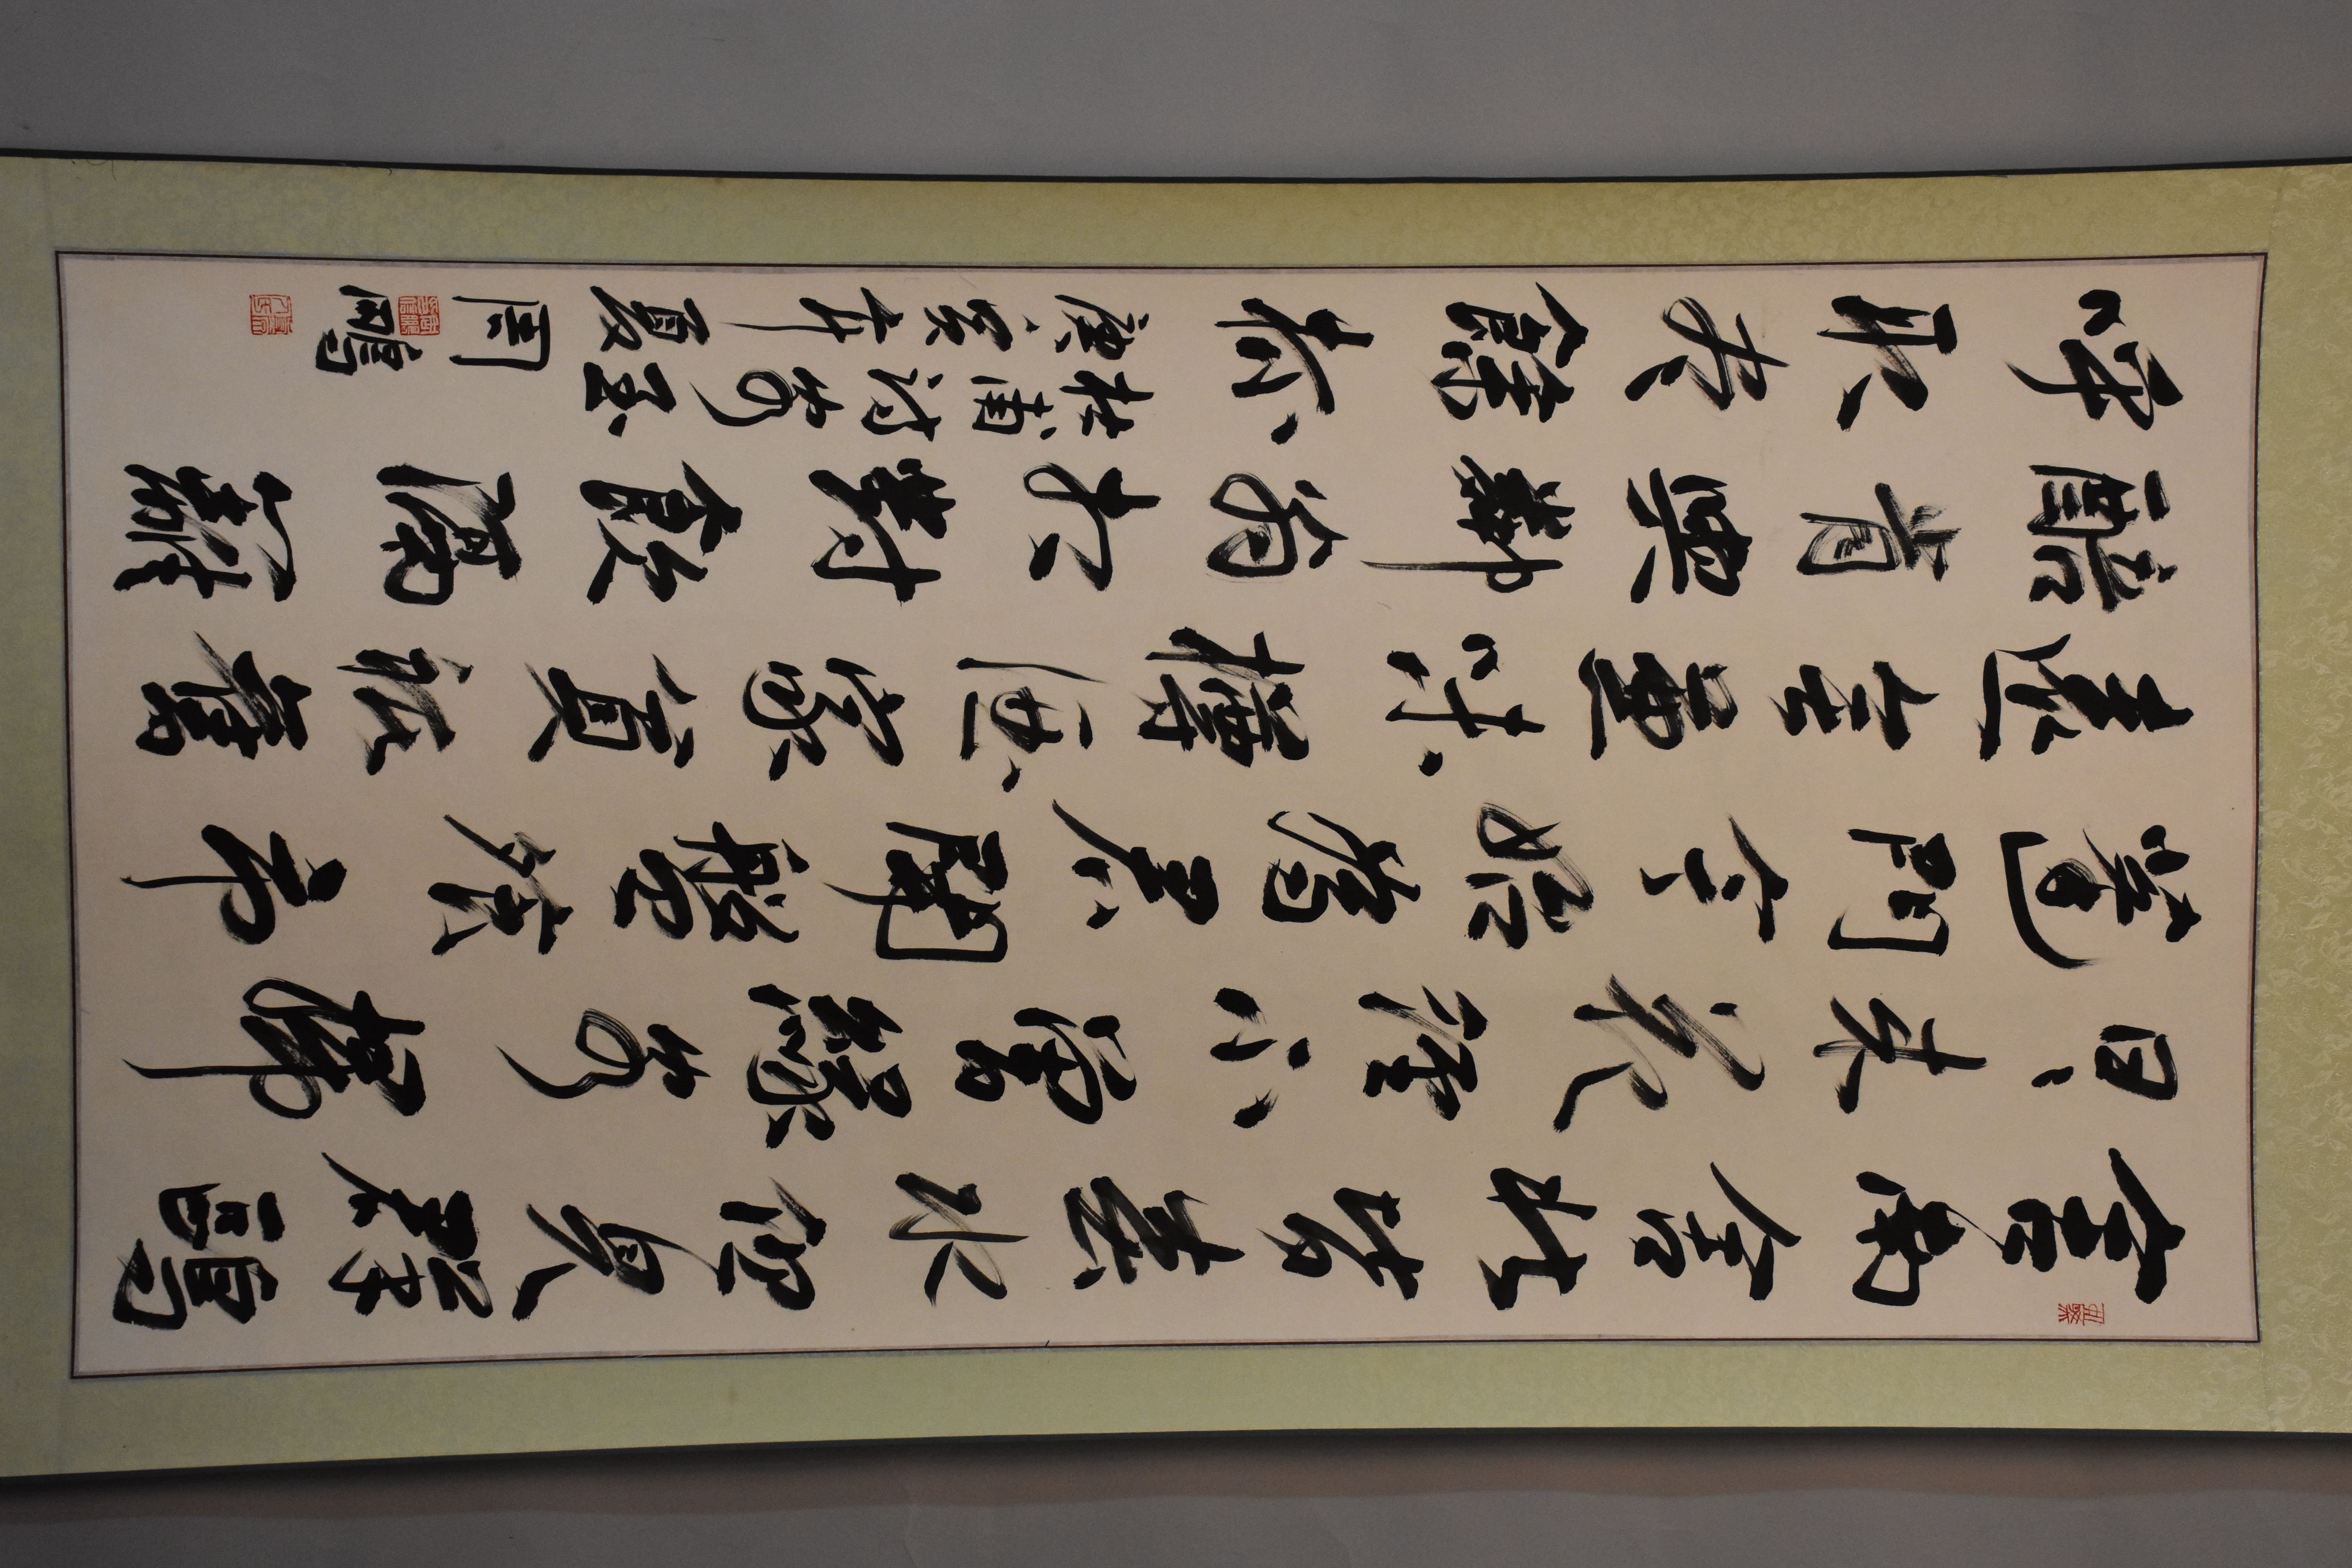 舍南舍北皆春水但見群鷗
日、來花徑不曾緣客掃
蓬門今始為君開盤飧市
遠無兼味樽酒家貧祇舊
醅肯與鄰翁相對飲隔籬
呼取盡餘杯
杜甫詩客至
寅年夏
周鵬